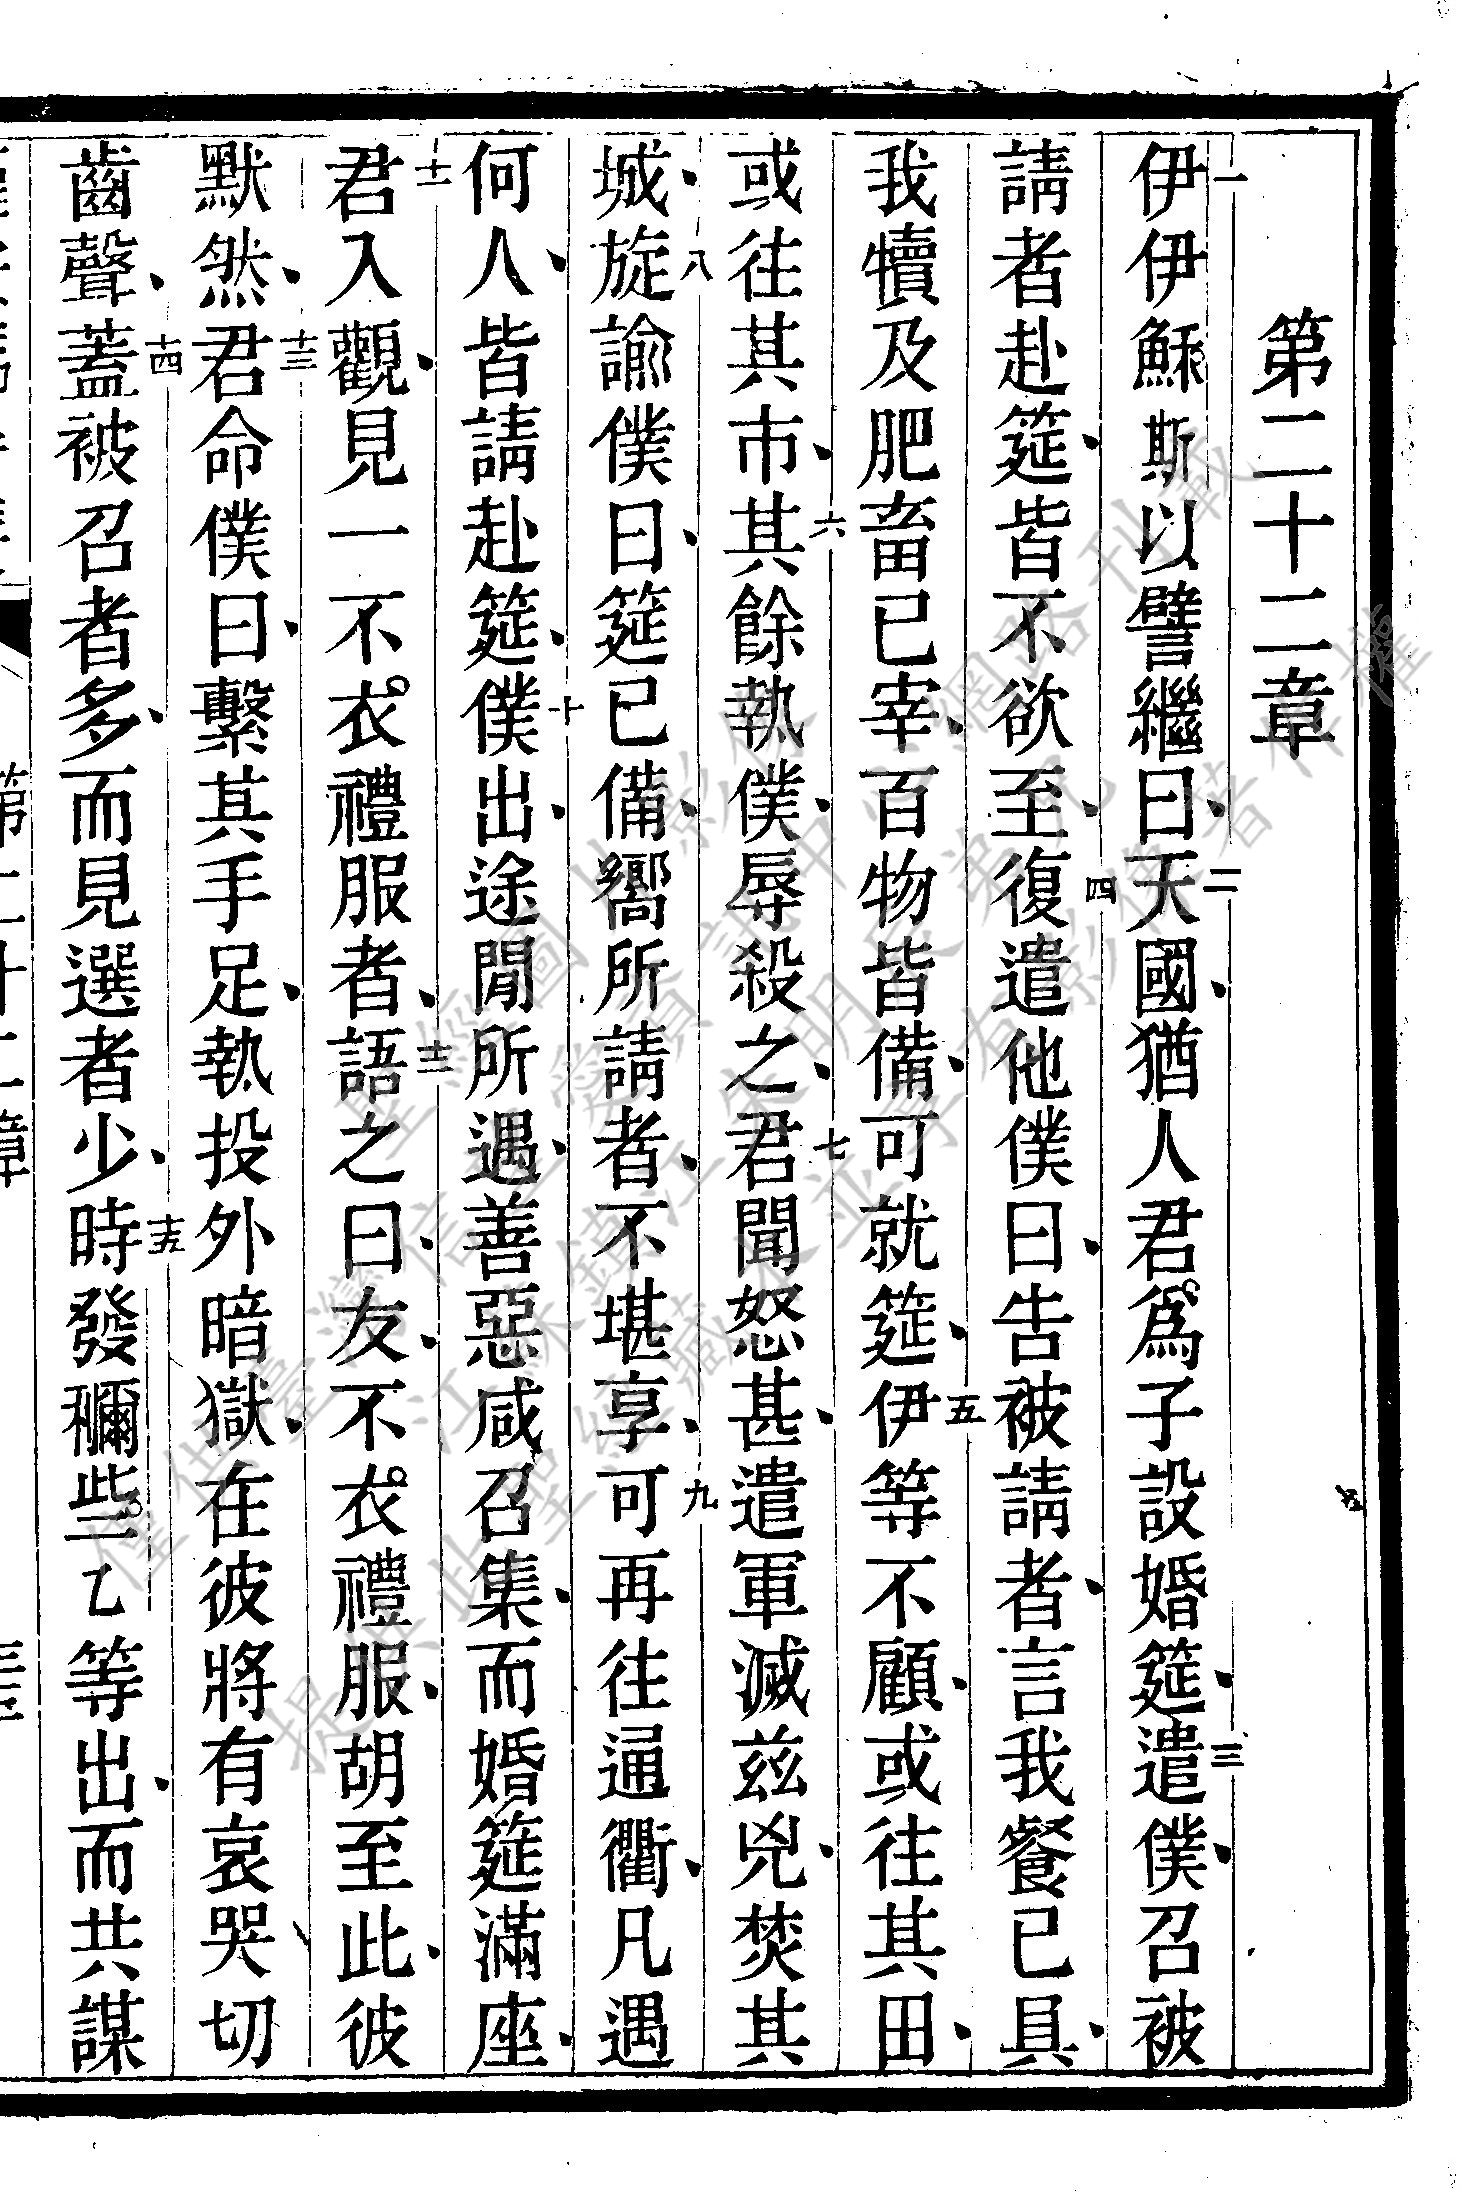 第二十二章
一伊伊穌斯以譬繼曰、二天國、猶人君爲子設婚筵、三遣僕、召被
請者赴筵、皆不欲至、四復遣他僕曰、告被請者、言我餐已具、
我犢及肥畜已宰、百物皆備、可就筵、五伊等不顧、或往其田、
或往其市、六其餘執僕、辱殺之、七君聞怒甚、遣軍滅茲兇、焚其
城、八旋諭僕曰、筵已備、嚮所請者、不堪享、九可再往通衢、凡遇
何人、皆請赴筵、十僕出、途閒所遇、善惡咸召集、而婚筵滿座、
十一君入觀、見一不衣禮服者、十二語之曰、友、不衣禮服、胡至此、彼
默然、十三君命僕曰、繫其手足、執投外暗獄、在彼將有哀哭切
齒聲、十四蓋被召者多、而見選者少、十五時發穪些乙等出、而共謀